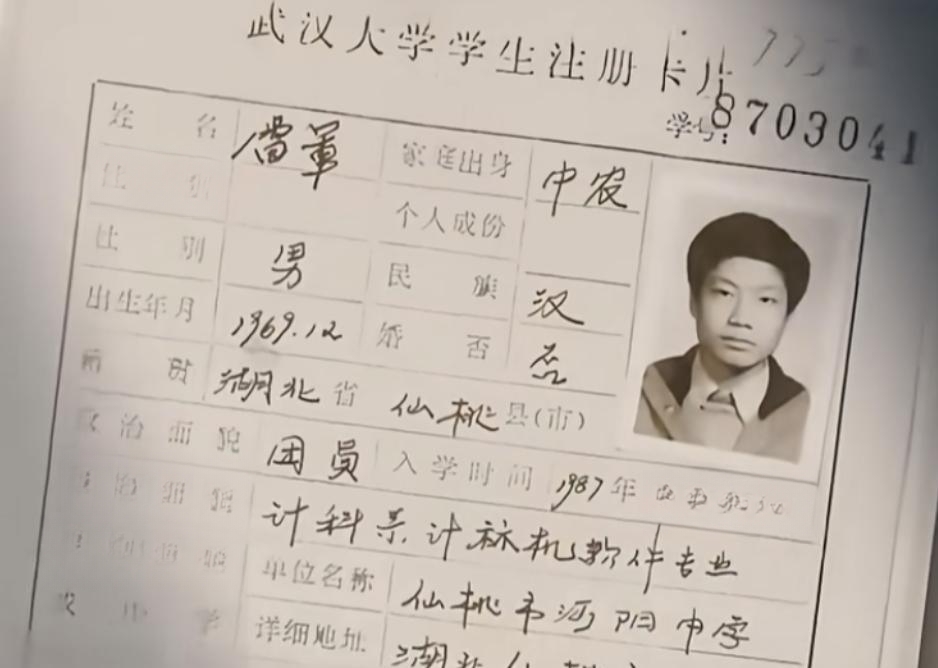 武汉大学学生注册卡片
学号:8703041
姓名 雷军 家庭出身 中农
个人成份
性别 男 民族 汉
出生年月 1969.12 婚否 否
湖北省 仙桃县(市)
政治面貌 团员 入学时间 1987年
计科系计算机软件专业
单位名称 仙桃市沔阳中学
详细地址 湖北